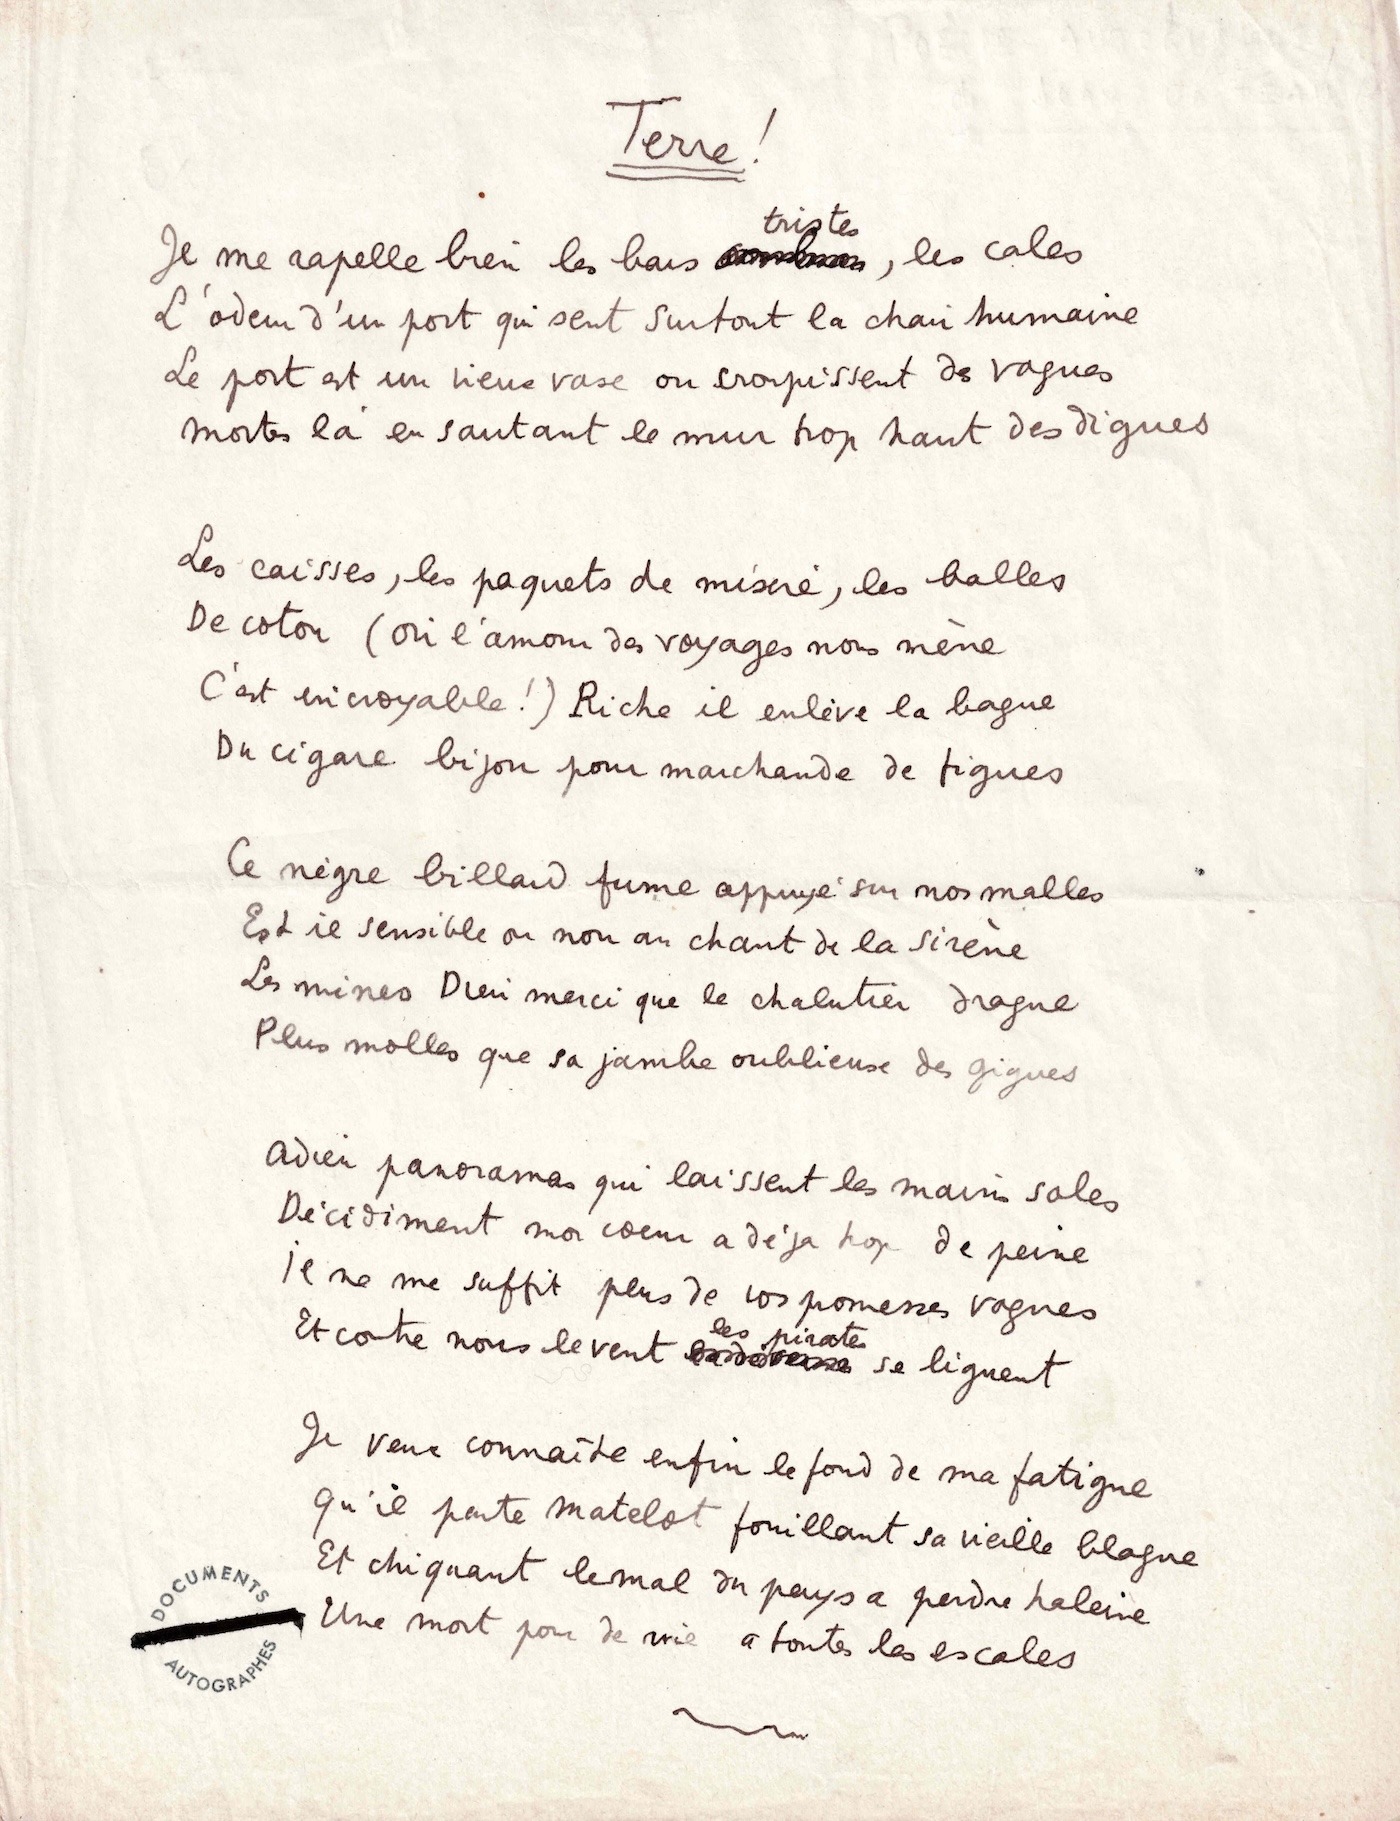 Terre!
Je me rapelle bien les bars tristes, les cales
L'odeur d'un port qui sent surtout la chair humaine
Le port est un vieux vase ou croupissent des vagues
mortes là en sautant le mur trop haut des digues
Les caisses, les paquets de misère, les balles
De coton (où l'amour des voyages nous mène
C'est incroyable!) Riche il enlève la bague
Du cigare bijou pour marchande de figues
Ce nègre billard fume appuyé sur nos malles
Est il sensible ou non au chant de la sirène
Les mines Dieu merci que le chalutier drague
Plus molles que sa jambe oublieuse des gigues
Adieu panoramas qui laissent les mains sales
Décidiment mon coeur a déja trop de peine
je ne me suffit plus de vos promesses vagues
Et contre nous le vent les pirates se liguent
Je veux connaître enfin le fond de ma fatigue
Qu'il parte matelot fouillant sa vieille blague
Et chiquant le mal du pays a perdre haleine
Une mort pour de vrie a toutes les escales
DOCUMENTS
AUTOGRAPHES